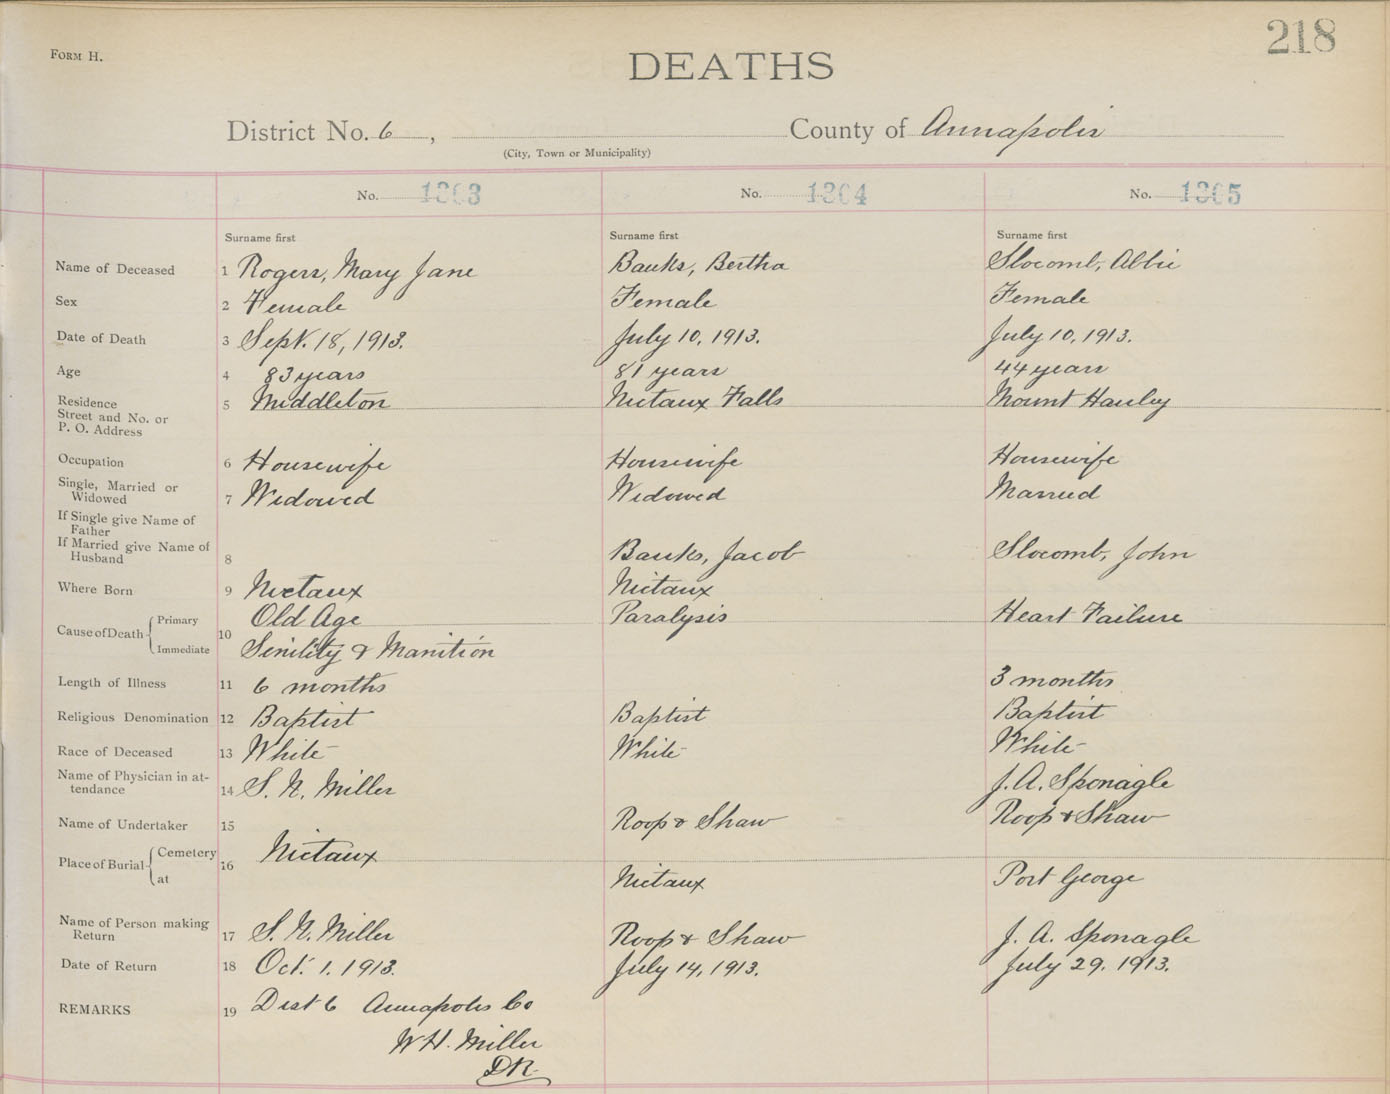 218
FORM H.
DEATHS
District No. 6, County of Annapolis
(City, Town or Municipality)
No. 1303 No. 1304 No. 1305
Surname first Surname first Surname first
Name of Deceased 1 Rogers, Mary Jane Banks, Bertha Slocomb, Abbie
Sex 2 Female Female Female
Date of Death 3 Sept. 18, 1913. July 10, 1913. July 10, 1913.
Age 4 83 years 81 years 44 years
Residence
Street and No. or
P. O. Address 5 Middleton Nictaux Falls Mount Hanley
Occupation 6 Housewife Housewife Housewife
Single, Married or
Widowed 7 Widowed Widowed Married
If Single give Name of
Father
If Married give Name of
Husband 8 Banks, Jacob Slocomb, John
Where Born 9 Nictaux Nictaux
Cause of Death Primary 10 Old Age Paralysis Heart Failure
Immediate Senility & Manition
Length of Illness 11 6 months 3 months
Religious Denomination 12 Baptist Baptist Baptist
Race of Deceased 13 White White White
Name of Physician in at-
tendance 14 S. N. Miller J. A. Sponagle
Name of Undertaker 15 Roop & Shaw Roop & Shaw
Place of Burial Cemetery 16 Nictaux
at Nictaux Port George
Name of Person making
Return 17 S. N. Miller Roop & Shaw J. A. Sponagle
Date of Return 18 Oct. 1. 1913. July 14, 1913. July 29. 1913.
REMARKS 19 Dist 6 Annapolis Co
W H. Miller
DR.